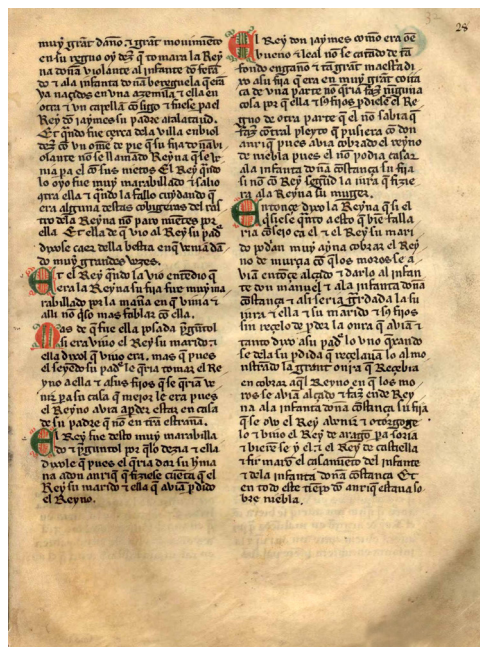 28
muy grãt daño ⁊ grãt mouimiẽto
en su regno oy dez q̃ tomara la Rey
na doña violante al infante dõ ferã
do ⁊ ala infanta doña berẽguela q̃ erã
ya naçidos en vna azemila ⁊ ella en
otra ⁊ vn capellã cõsigo ⁊ fuese pa el
Rey dõ jaymes su padre a calataiud.
Et q̃ndo fue çerca dela villa enbiol
dez cõ vn om̃e de pie q̃ su fija doña vi
olante no se llamado Reyna q̃ se
nia pa el cõ sus nietos El Rey q̃ndo
lo oyo fue muy marabillado ⁊ salio
ot̃ra ella ⁊ q̃ndo la fallo cuydando q̃
era alguna destas
dela Reyna nõ paro miẽtes por
ella Et ella de q̃ vio al Rey su padr̃
dixose caer dela bestia en q̃ venia dã
do muy grandes vozes.
Et el Rey q̃ndo la vio entẽdio q̃
era la Reyna su fija fue muy ma
rabillado por la maña en q̃ vinia ⁊
alli nõ q̃so mas fablar cõ ella.
Mas de q̃ fue ella posada p̃gũtol
si era viuo el Rey su marido ⁊
ella dixol q̃ viuo era. mas q̃ pues
el seyẽdo su padr̃ le q̃ria tomar el Re
yno a ella ⁊ a sus fijos q̃ se q̃ria ve
nir pa su casa q̃ mejor le era pues
el Reyno auia a p̃der estar en casa
de su padre q̃ nõ en tr̃a estraña.
El Rey fue desto muy marabilla
do ⁊ p̃gũtol por q̃ lo dezia ⁊ ella
dixole q̃ pues el q̃ria dar su hrm̃a
na a don anriq̃ q̃ fiziese cuẽta q̃ el
Rey su marido ⁊ ella q̃ auiã p̃dido
el Reyno.
El Rey don jaymes como era om̃e
bueno ⁊ leal no se catãdo de tã
fondo engaño ⁊ tã grãt maestria di
xo a su fija q̃ era en muy grãt cuita
ca de vna parte no q̃ria faz̃ ninguna
cosa por q̃ ella ⁊ sꝰ fijos p̃diesẽ el Re
gno de otra parte q̃ el nõ sabia q̃
faz̃ cõtral pleyto q̃ pusiera cõ don
anriq̃ pues auia cobrado el reyno
de niebla pues el nõ podia casar
ala infanta doña costãça su fija
si nõ cõ Rey segũd la iura q̃ fizie
ra ala Reyna su muger.
Entonçe dixo la Reyna q̃ si el
q̃siese q̃nto a esto q̃ biẽ falla
ria cõsejo ca el ⁊ el Rey su mari
do podian muy ayna cobrar el Rey
no de murçia cõ q̃ los moros se a
viã entõçe alçado ⁊ darlo al infan
te don manuel ⁊ ala infanta doña
costãça ⁊ asi seria g̃rdada la su
iura ⁊ ella ⁊ su marido ⁊ sꝰ fijos
sin reçelo de p̃der la onra q̃ auiã ⁊
tanto dixo a su padr̃ lo vno q̃rando
se dela su p̃dida q̃ reçelaua lo al mo
strãdo la grant onrra q̃ Reçebia
en cobrar aq̃l Reyno en q̃ los mo
ros se auiã alçado ⁊ faz̃ ende Rey
na ala infanta doña costãça su fija
q̃ se ouo el Rey auenir ⁊ otorgoge
lo ⁊ vino el Rey de aragõ pa soria
⁊ vierõse y el ⁊ el Rey de castiella
⁊ firmarõ el casamiẽto del infante
⁊ dela infanta doña costãça Et
en todo este tiẽpo dõ anriq̃ estaua so
bre niebla.